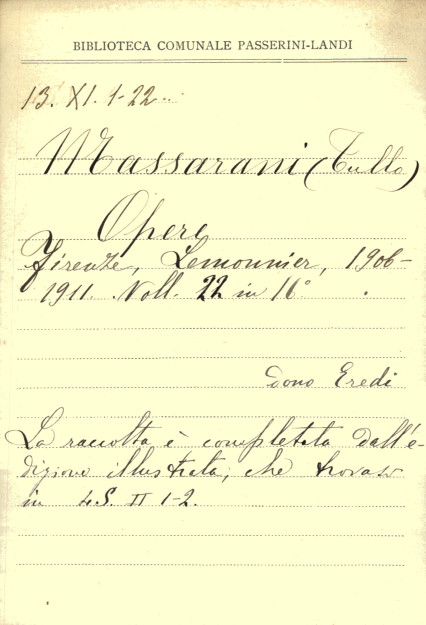 BIBLIOTECA COMUNALE PASSERINI-LANDI
13. XI. 1-22..
Massarani (Tullo)
Opere
Firenze, Lemonnier, 1906-
1911. Voll. 22 in 16°.
dono Eredi
La raccolta è completata dall'e-
dizione illustrata, che trovasi
in 4S. II 1-2.